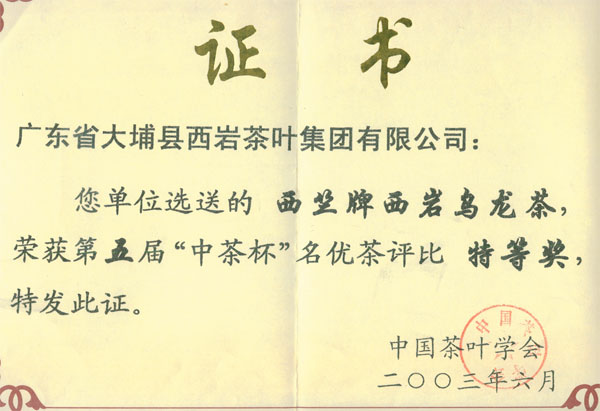 证书
广东省大埔县西岩茶叶集团有限公司：
您单位选送的 西竺牌西岩乌龙茶，
荣获第五届“中茶杯”名优茶评比 特等奖，
特发此证。
中国茶叶学会
二〇〇三年六月
中国茶